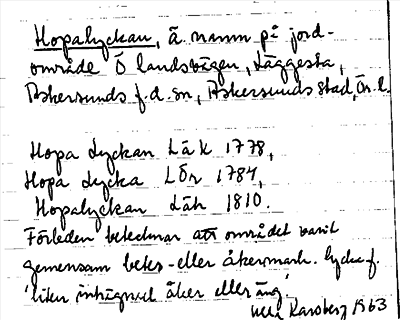 Hopalyckan, ä. namn på jord-
område Ö landsvägen, Läggesta,
Askersunds f.d. sn, Askersunds stad, Ör. l.
Hopa Lyckan LäK 1778,
Hopa Lycka LÖr 1784,
Hopalyckan Läh 1810.
Förleden betecknar att området varit
gemensam betes- eller åkermark. lycka f.
'liten inhägnad åker eller äng'.
Karsberg 1963